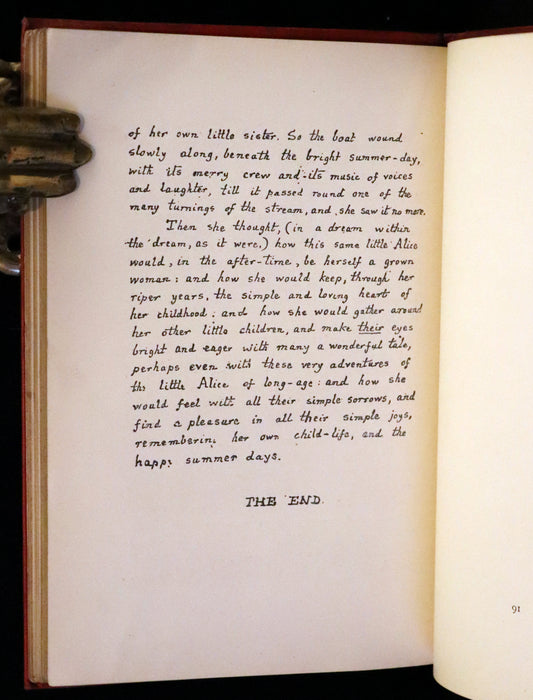 of her own little sister. So the boat wound
slowly along, beneath the bright summer-day,
with its merry crew and its music of voices
and laughter, till it passed round one of the
many turnings of the stream, and she saw it no more.
Then she thought, (in a dream within
the dream, as it were,) how this same little Alice
would, in the after-time, be herself a grown
woman: and how she would keep, through her
riper years, the simple and loving heart of
her childhood: and how she would gather around
her other little children, and make their eyes
bright and eager with many a wonderful tale,
perhaps even with these very adventures of
the little Alice of long-ago: and how she
would feel with all their simple sorrows, and
find a pleasure in all their simple joys,
remembering her own child-life, and the
happy summer days.
THE END.
91